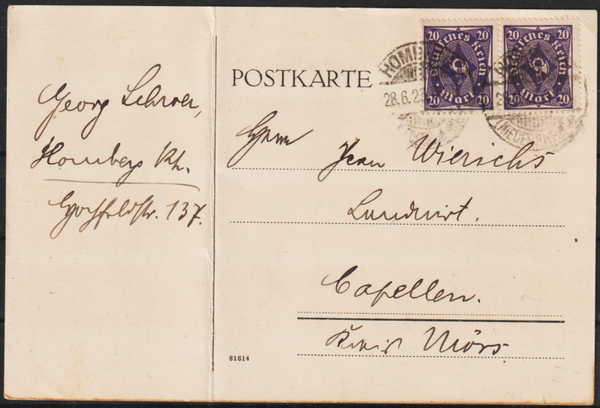 POSTKARTE
20 Deutsches Reich 20
20 Mark 20
20 Deutsches Reich 20
20 Mark 20
28.6.2
Georg
Homberg Rh.
137.
Herrn
Wierichs
Landwirt.
Capellen.
Kreis Mörs
81614